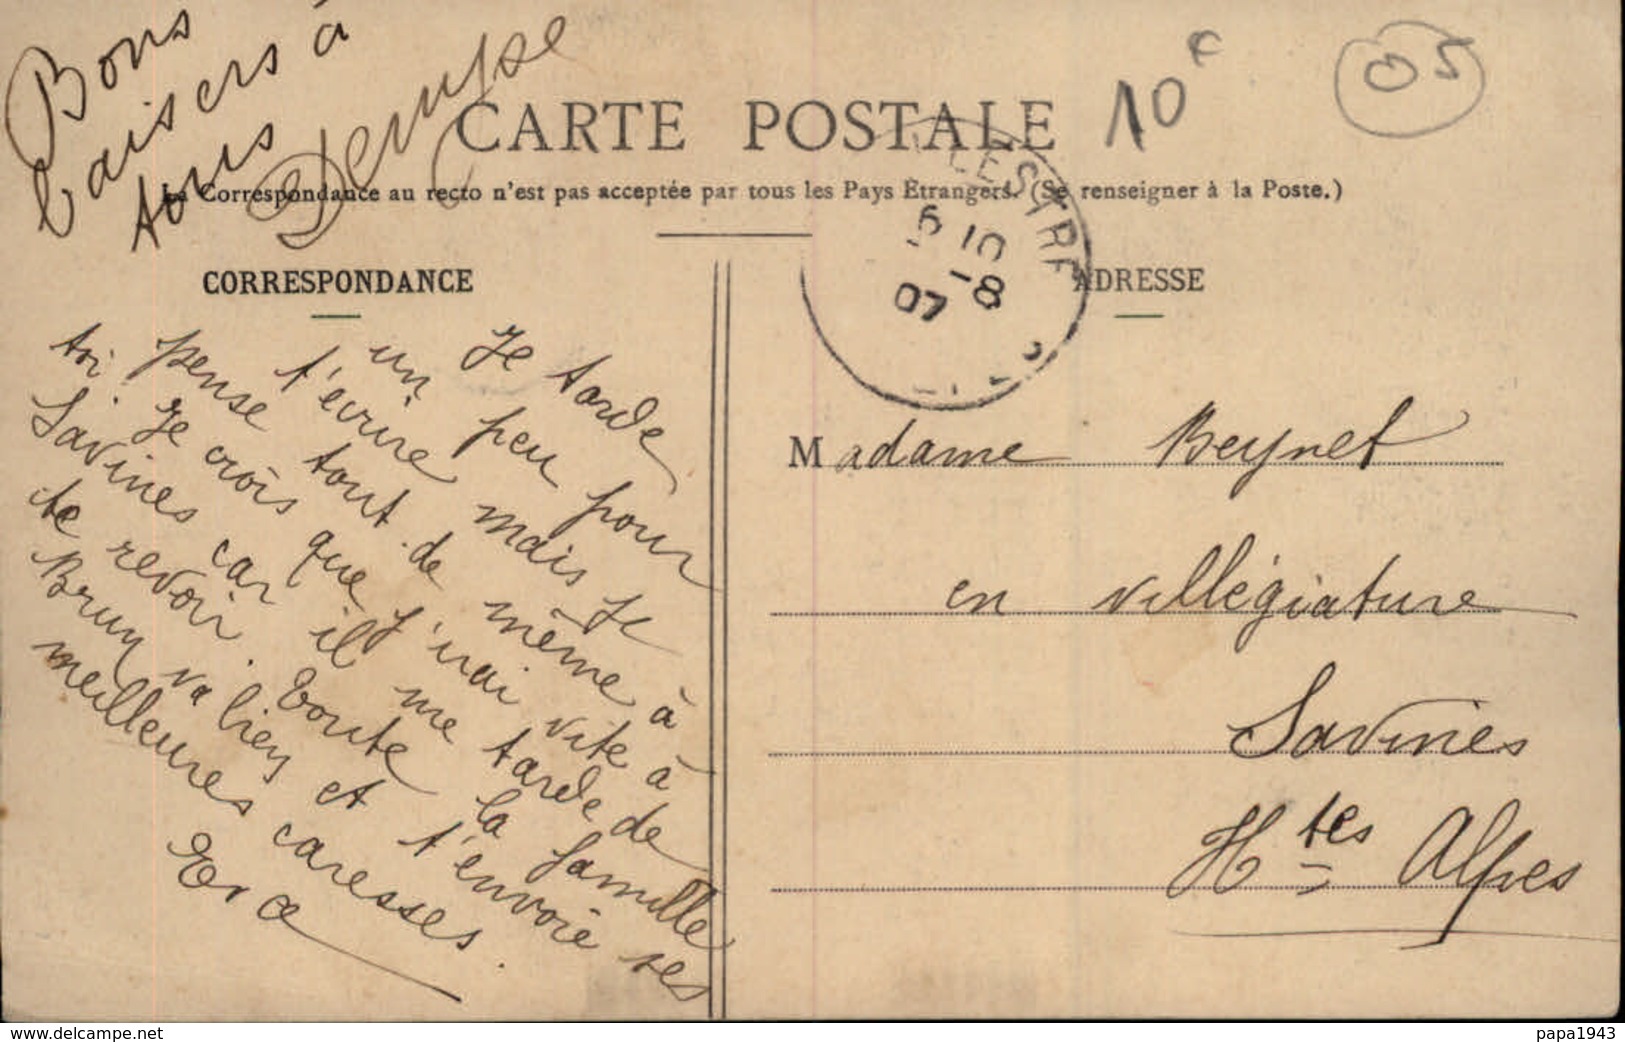 Bons
baisers à
tous
Denyse
10 F
05
CARTE POSTALE
La Correspondance au recto n'est pas acceptée par tous les Pays Etrangers. (Se renseigner à la Poste.)
LLESTRE
6 10
-8
07
CORRESPONDANCE
ADRESSE
Je tarde
un peu pour
t'ecrire mais je
pense tout de même à
toi. Je crois que j'irai vite à
Savines car il me tarde de
te revoir. Toute la famille
Brun va bien et t'envoie ses
meilleures caresses.
Madame Beynet
en villégiature
Savines
Htes Alpes
www.delcampe.net
papa1943